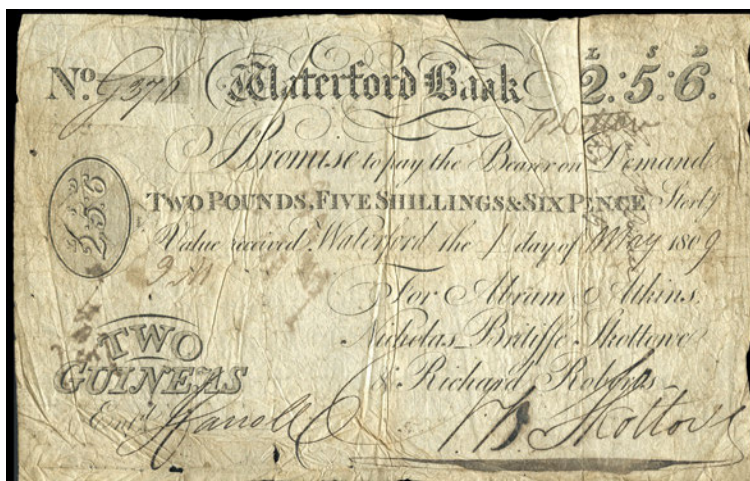 L S D
No. G376 Waterford Bank 2:5:6.
I Promise to pay the Bearer on Demand
TWO POUNDS, FIVE SHILLINGS & SIX PENCE Sterl.g
L S D
2.5.6
Value received Waterford the 1 day of May 1809
For Abram Atkins.
Nicholas Britiffe Skottowe
& Richard Roberts
TWO
GUINEAS
Ent.d
N B Skottowe